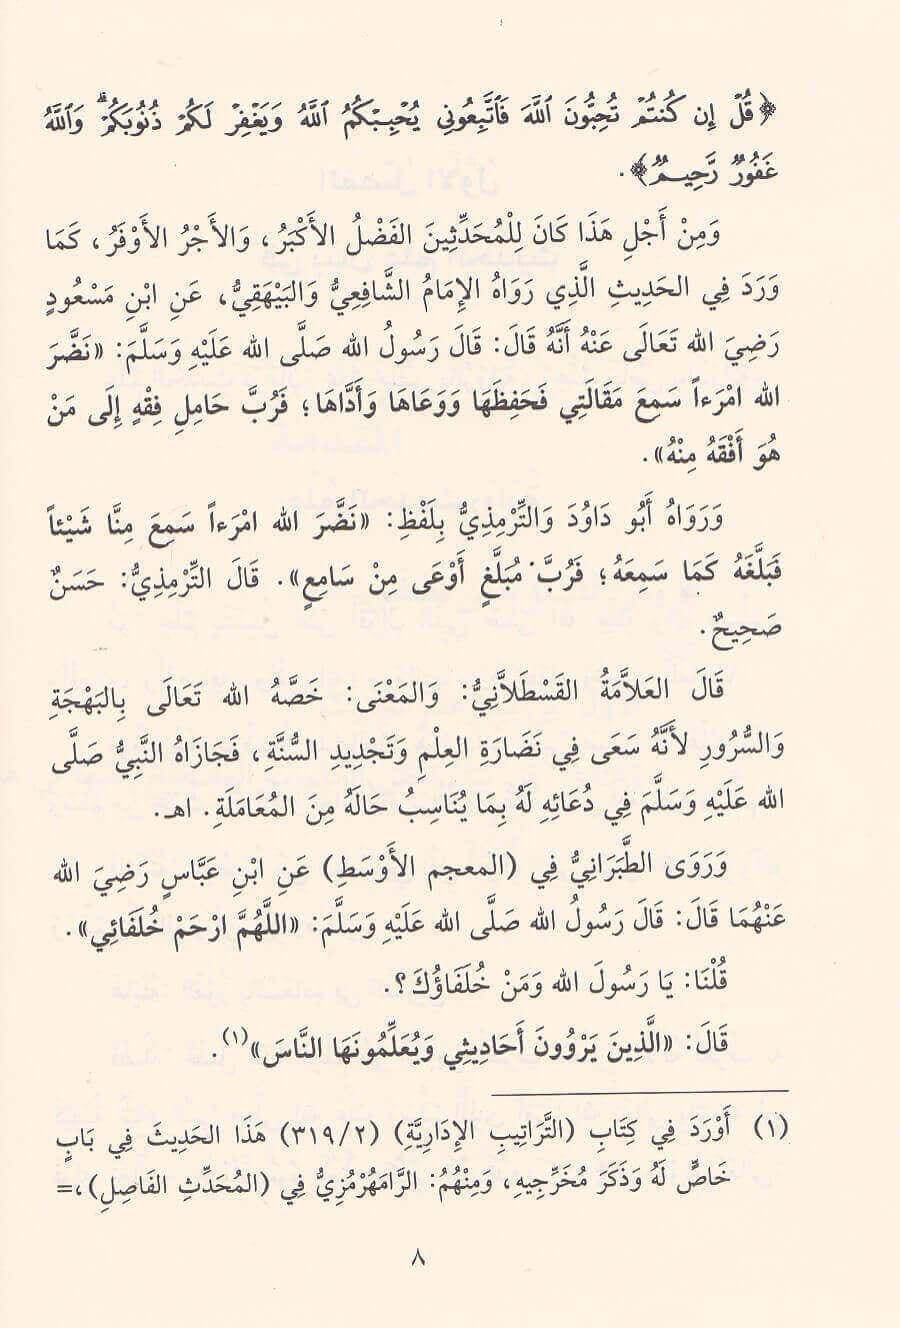 ﴿قُلْ إِن كُنتُمْ تُحِبُّونَ ٱللَّهَ فَٱتَّبِعُونِى يُحْبِبْكُمُ ٱللَّهُ وَيَغْفِرْ لَكُمْ ذُنُوبَكُمْ ۗ وَٱللَّهُ
غَفُورٌ رَّحِيمٌ﴾.
وَمِنْ أَجْلِ هَذَا كَانَ لِلْمُحَدِّثِينَ الفَضْلُ الأَكْبَرُ، وَالأَجْرُ الأَوْفَرُ، كَمَا
وَرَدَ فِي الحَدِيثِ الَّذِي رَوَاهُ الإِمَامُ الشَّافِعِيُّ وَالبَيْهَقِيُّ، عَنِ ابْنِ مَسْعُودٍ
رَضِيَ الله تَعَالَى عَنْهُ أَنَّهُ قَالَ: قَالَ رَسُولُ الله صَلَّى الله عَلَيْهِ وَسَلَّمَ: «نَضَّرَ
الله امْرَءاً سَمِعَ مَقَالَتِي فَحَفِظَهَا وَوَعَاهَا وَأَدَّاهَا؛ فَرُبَّ حَامِلِ فِقْهٍ إِلَى مَنْ
هُوَ أَفْقَهُ مِنْهُ».
وَرَوَاهُ أَبُو دَاوُدَ وَالتِّرْمِذِيُّ بِلَفْظِ: «نَضَّرَ الله امْرَءاً سَمِعَ مِنَّا شَيْئاً
فَبَلَّغَهُ كَمَا سَمِعَهُ؛ فَرُبَّ مُبَلَّغٍ أَوْعَى مِنْ سَامِعٍ». قَالَ التِّرْمِذِيُّ: حَسَنٌ
صَحِيحٌ.
قَالَ العَلاَّمَةُ القَسْطَلاَّنِيُّ: وَالمَعْنَى: خَصَّهُ الله تَعَالَى بِالبَهْجَةِ
وَالسُّرُورِ لأَنَّهُ سَعَى فِي نَضَارَةِ العِلْمِ وَتَجْدِيدِ السُّنَّةِ، فَجَازَاهُ النَّبِيُّ صَلَّى
الله عَلَيْهِ وَسَلَّمَ فِي دُعَائِهِ لَهُ بِمَا يُنَاسِبُ حَالَهُ مِنَ المُعَامَلَةِ. اهـ.
وَرَوَى الطَّبَرَانِيُّ فِي (المعجم الأَوْسَطِ) عَنِ ابْنِ عَبَّاسٍ رَضِيَ الله
عَنْهُمَا قَالَ: قَالَ رَسُولُ الله صَلَّى الله عَلَيْهِ وَسَلَّمَ: «اللَّهُمَّ ارْحَمْ خُلَفَائِي».
قُلْنَا: يَا رَسُولَ الله وَمَنْ خُلَفَاؤُكَ؟.
قَالَ: «الَّذِينَ يَرْوُونَ أَحَادِيثِي وَيُعَلِّمُونَهَا النَّاسَ»(١).
(١) أَوْرَدَ فِي كِتَابِ (التَّرَاتِيبِ الإِدَارِيَّةِ) (٣١٩/٢) هَذَا الحَدِيثَ فِي بَابٍ
خَاصٍّ لَهُ وَذَكَرَ مُخَرِّجِيهِ، وَمِنْهُمُ: الرَّامَهُرْمُزِيُّ فِي (المُحَدِّثِ الفَاصِلِ)،=
٨